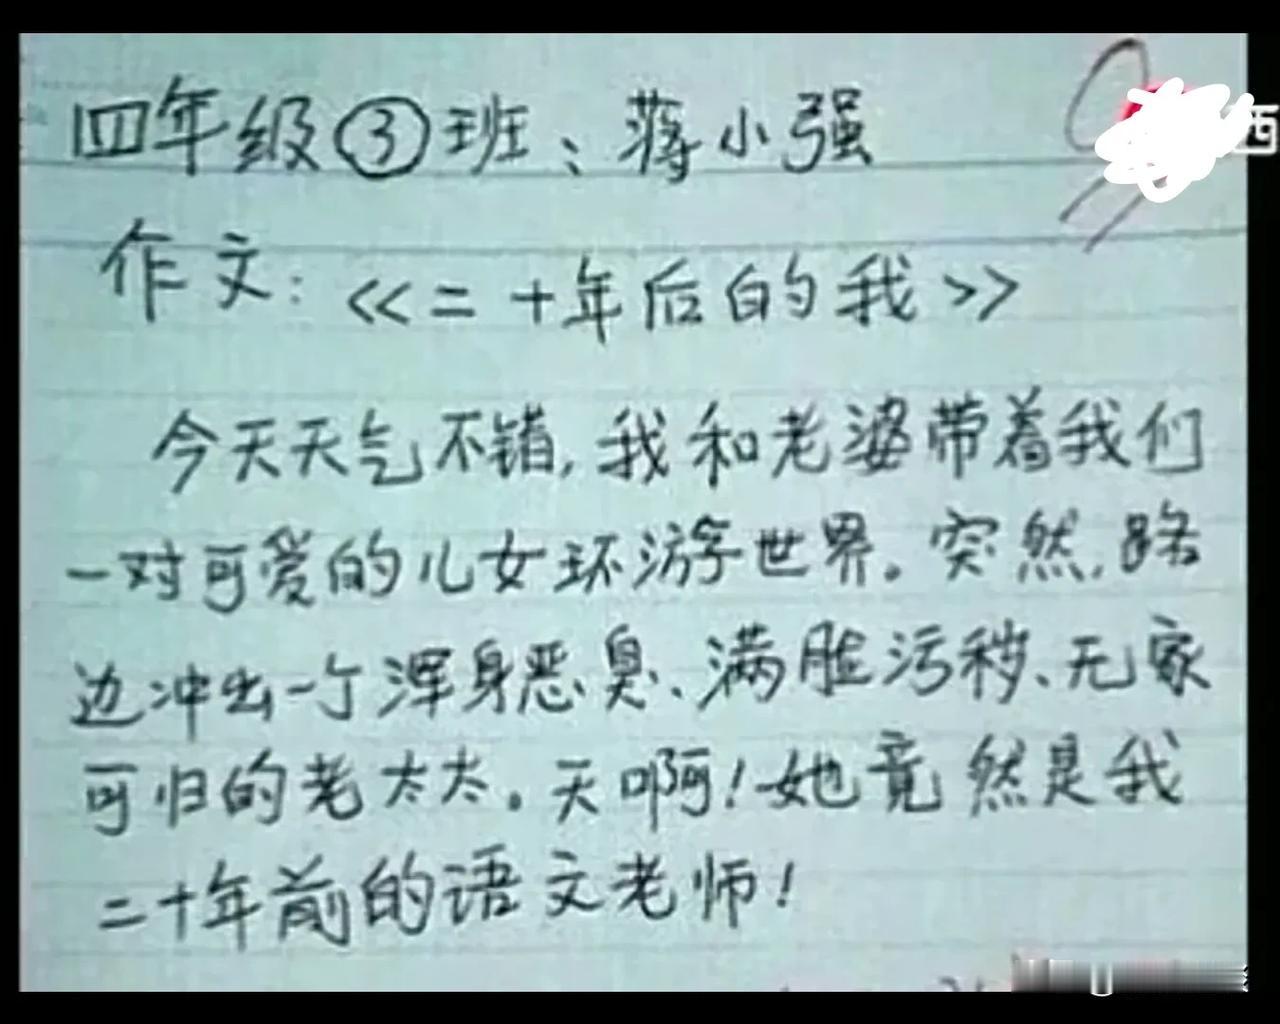 四年级③班：蒋小强
西
作文：《二十年后的我》
今天天气不错，我和老婆带着我们
一对可爱的儿女环游世界。突然，路
边冲出一个浑身恶臭、满脸污秽、无家
可归的老太太。天啊！她竟然是我
二十年前的语文老师！